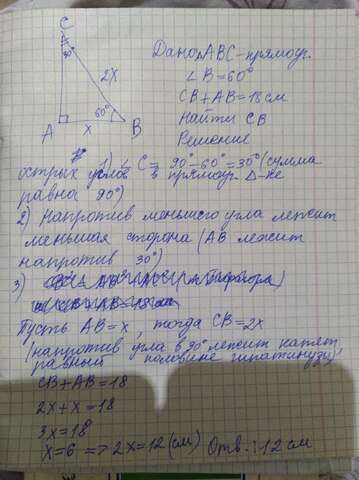 C
30°
2x
60°
A x B
Дано: ΔABC-прямоуг.
∠B=60°
CB+AB=18см
Найти CB
Решение
1) ∠C = 90°-60°=30° (сумма
острых углов в прямоуг. Δ-ке
равна 90°)
2) Напротив меньшего угла лежит
меньшая сторона (AB лежит
напротив 30°)
3)
Пусть AB=x, тогда CB=2x
(напротив угла в 30° лежит катет
равный половине гипатинузы)
CB+AB=18
2x+x=18
3x=18
x=6 => 2x=12(см) Отв.: 12 см